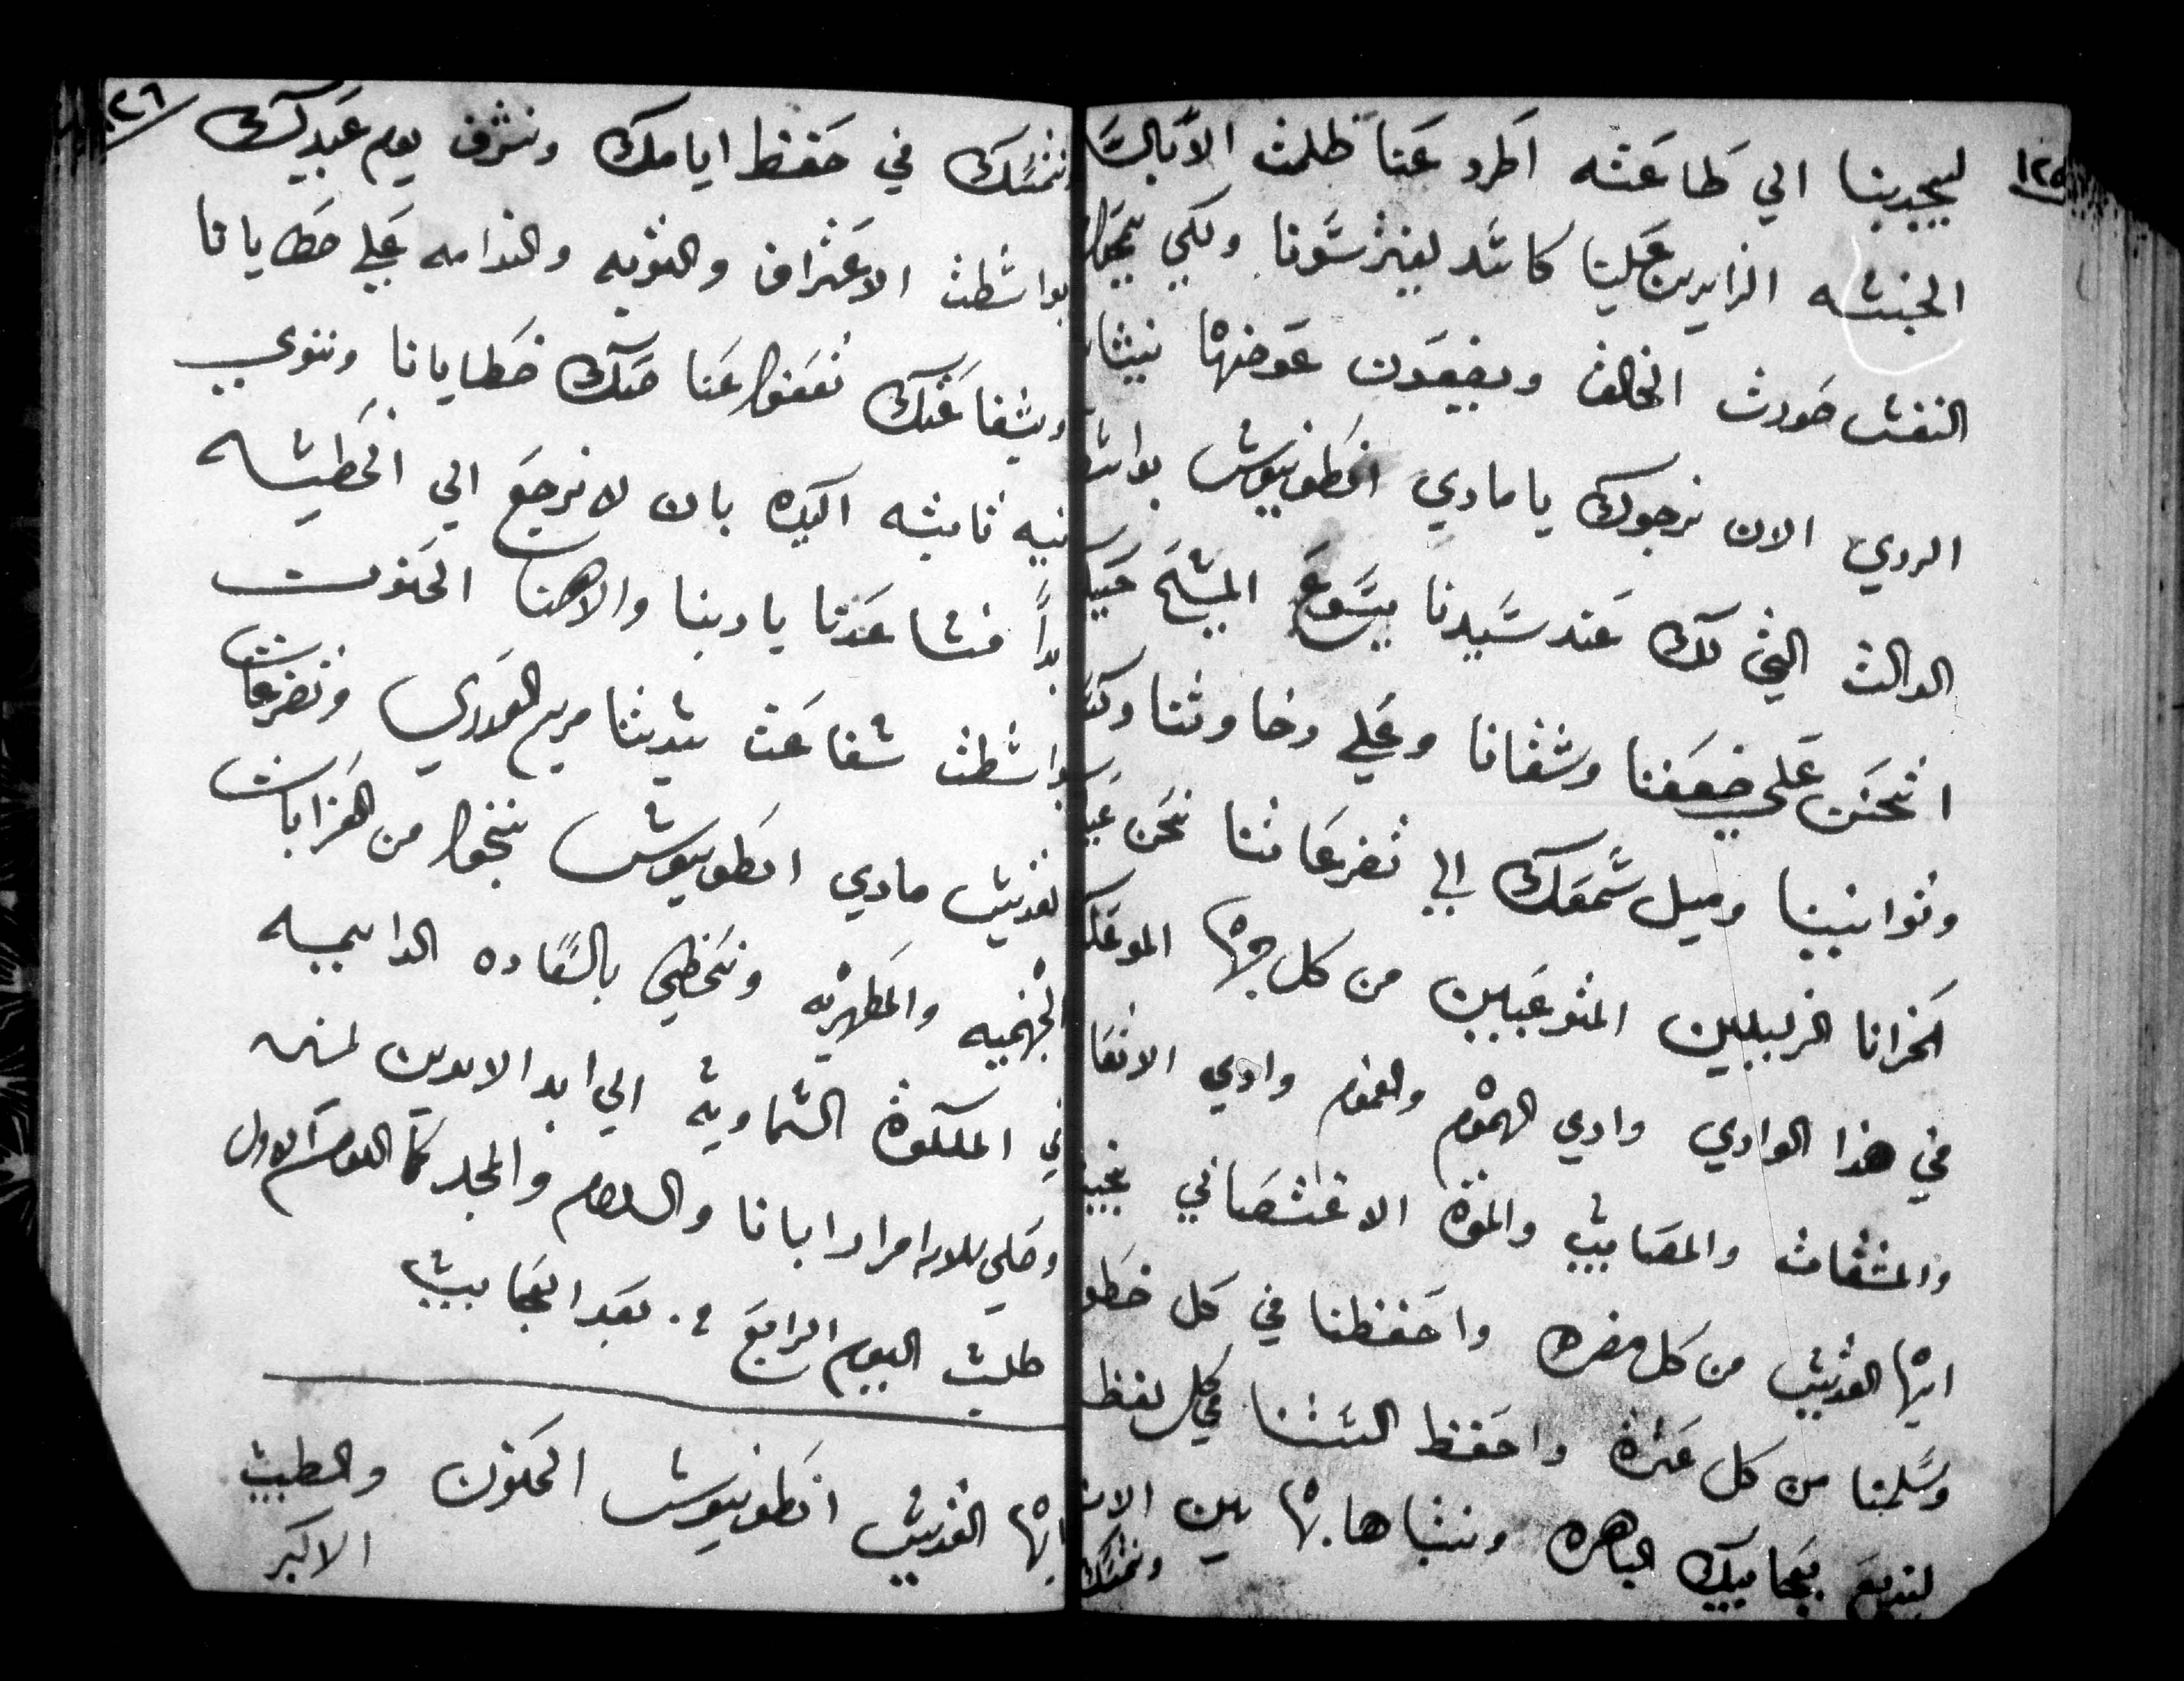 ١٢٥
ليجدبنا الي طاعته اطرد عنا ظلمت الابالسه
الخبيثه الزايرين علينا كاسد ليفترسونا ولكي يمحوا
النفس صورت الخالف ويضيعون عوضها نيشان
الردي الان نرجوك يا مادي انطونيوش بواسطة
الدالت التي لك عند سيدنا يسوع المسيح حبيبك
اتحنن علي ضعفنا وشقانا وعلي رخاوتنا وكسلنا
وتوانينا وميل سمعك الي تضرعاتنا نحن عبيدك
الحزانا الزليلين المتوعبين من كل جهه
في هذا الوادي وادي الهموم والغموم وادي الاتعاب
والمشقات والمصايب والموت الاغتصابي نجينا
ايها القديس من كل مضره واحفظنا في كل خطوه
وسلمنا من كل عثرة واحفظ السنتنا في كل لفظ
لنديع بعجايبك الباهره ونتباها بها بين
ونتمسك
١٢٦
ونتمسك في حفظ ايامك ونشرف يوم عيدك
بواسطت الاعتراف والتوبه والندامه علي خطايانا
وبشفاعتك تمعوا عنا حتك خطايانا وننوي
نيه تابته اكيده بان لا نرجع الي الخطيه
ابداً فساعدنا يا ربنا والاهنا الحنون
بواسطت شفاعت ستنا مريم العدري وتضرعات
القديس مادي انطونيوش ننجوا من العزابات
الجهنميه والمطهريه ونحظي بالسعاده الدايميه
في الملكوة السماويه الي ابد الابدين امين
وصلي للاله امرار ابانا والسلام والمجد كما اليوم الاول
طلبت اليوم الرابع ٠ بعد العجايب
ايها القديس انطونيوش الحنون والطبيب
الاكبر